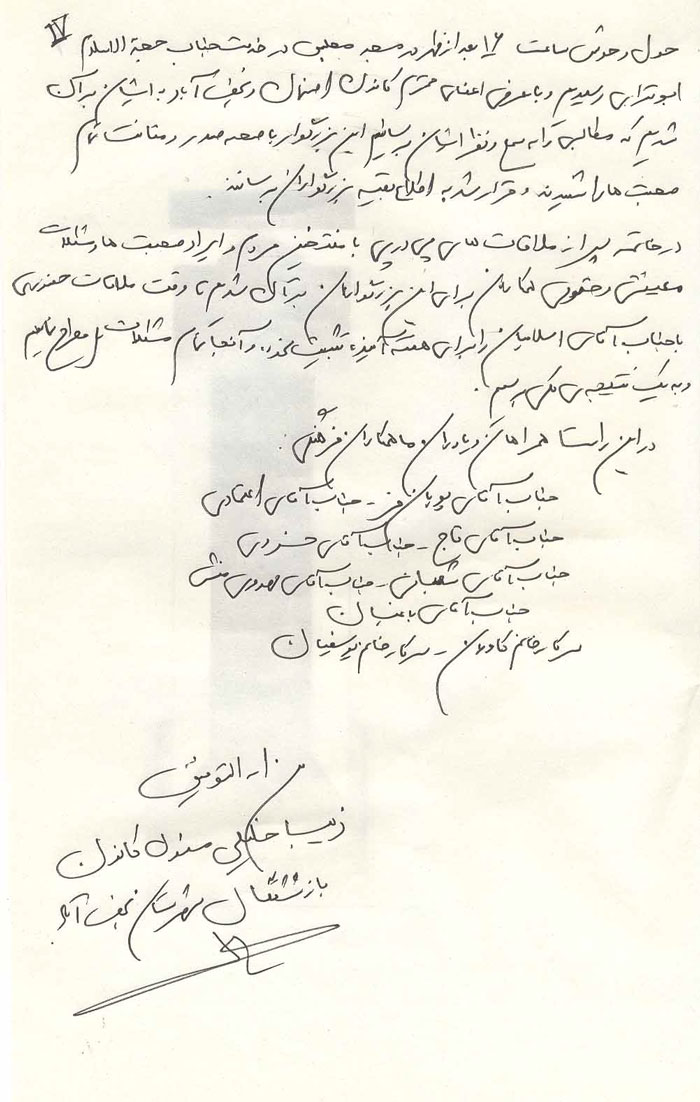 IV
حول و حوش ساعت ۱۶ بعد از ظهر در مسجد مصلی در خدمت جناب حجة الاسلام
ابوترابی رسیدیم و با عرض اعضای محترم کانون اصفهان و نجف آباد با ایشان
شدیم که مطالبی را به سمع و نظر ایشان برسانیم این بزرگوار با سعه صدر و متانت تمام
صحبت ها را شنیدند و قرار شد به اطلاع بقیه بزرگواران برسانند.
در خاتمه پس از ملاقات های پی در پی با منتخبین مردم و ایراد صحبت ها و مشکلات
معیشتی و حقوقی همکاران برای این بزرگواران بر آن شدیم تا وقت ملاقات حضوری
با جناب آقای اسلامیان را برای هفته آینده تثبیت نموده و آنجا تمام مشکلات را مطرح نمائیم
و به یک نتیجه ی کلی برسیم.
در این راستا همراهان و یاوران ما همکاران فرهنگی:
جناب آقای پویان فر - جناب آقای اعتمادی
جناب آقای تاج - جناب آقای خسروی
جناب آقای شعبانی - جناب آقای مهدوی منش
جناب آقای باغبان
سرکار خانم کاویان - سرکار خانم یوسفیان
من ا... التوفیق
زیبا خلیلی مسئول کانون
بازنشستگان شهرستان نجف آباد